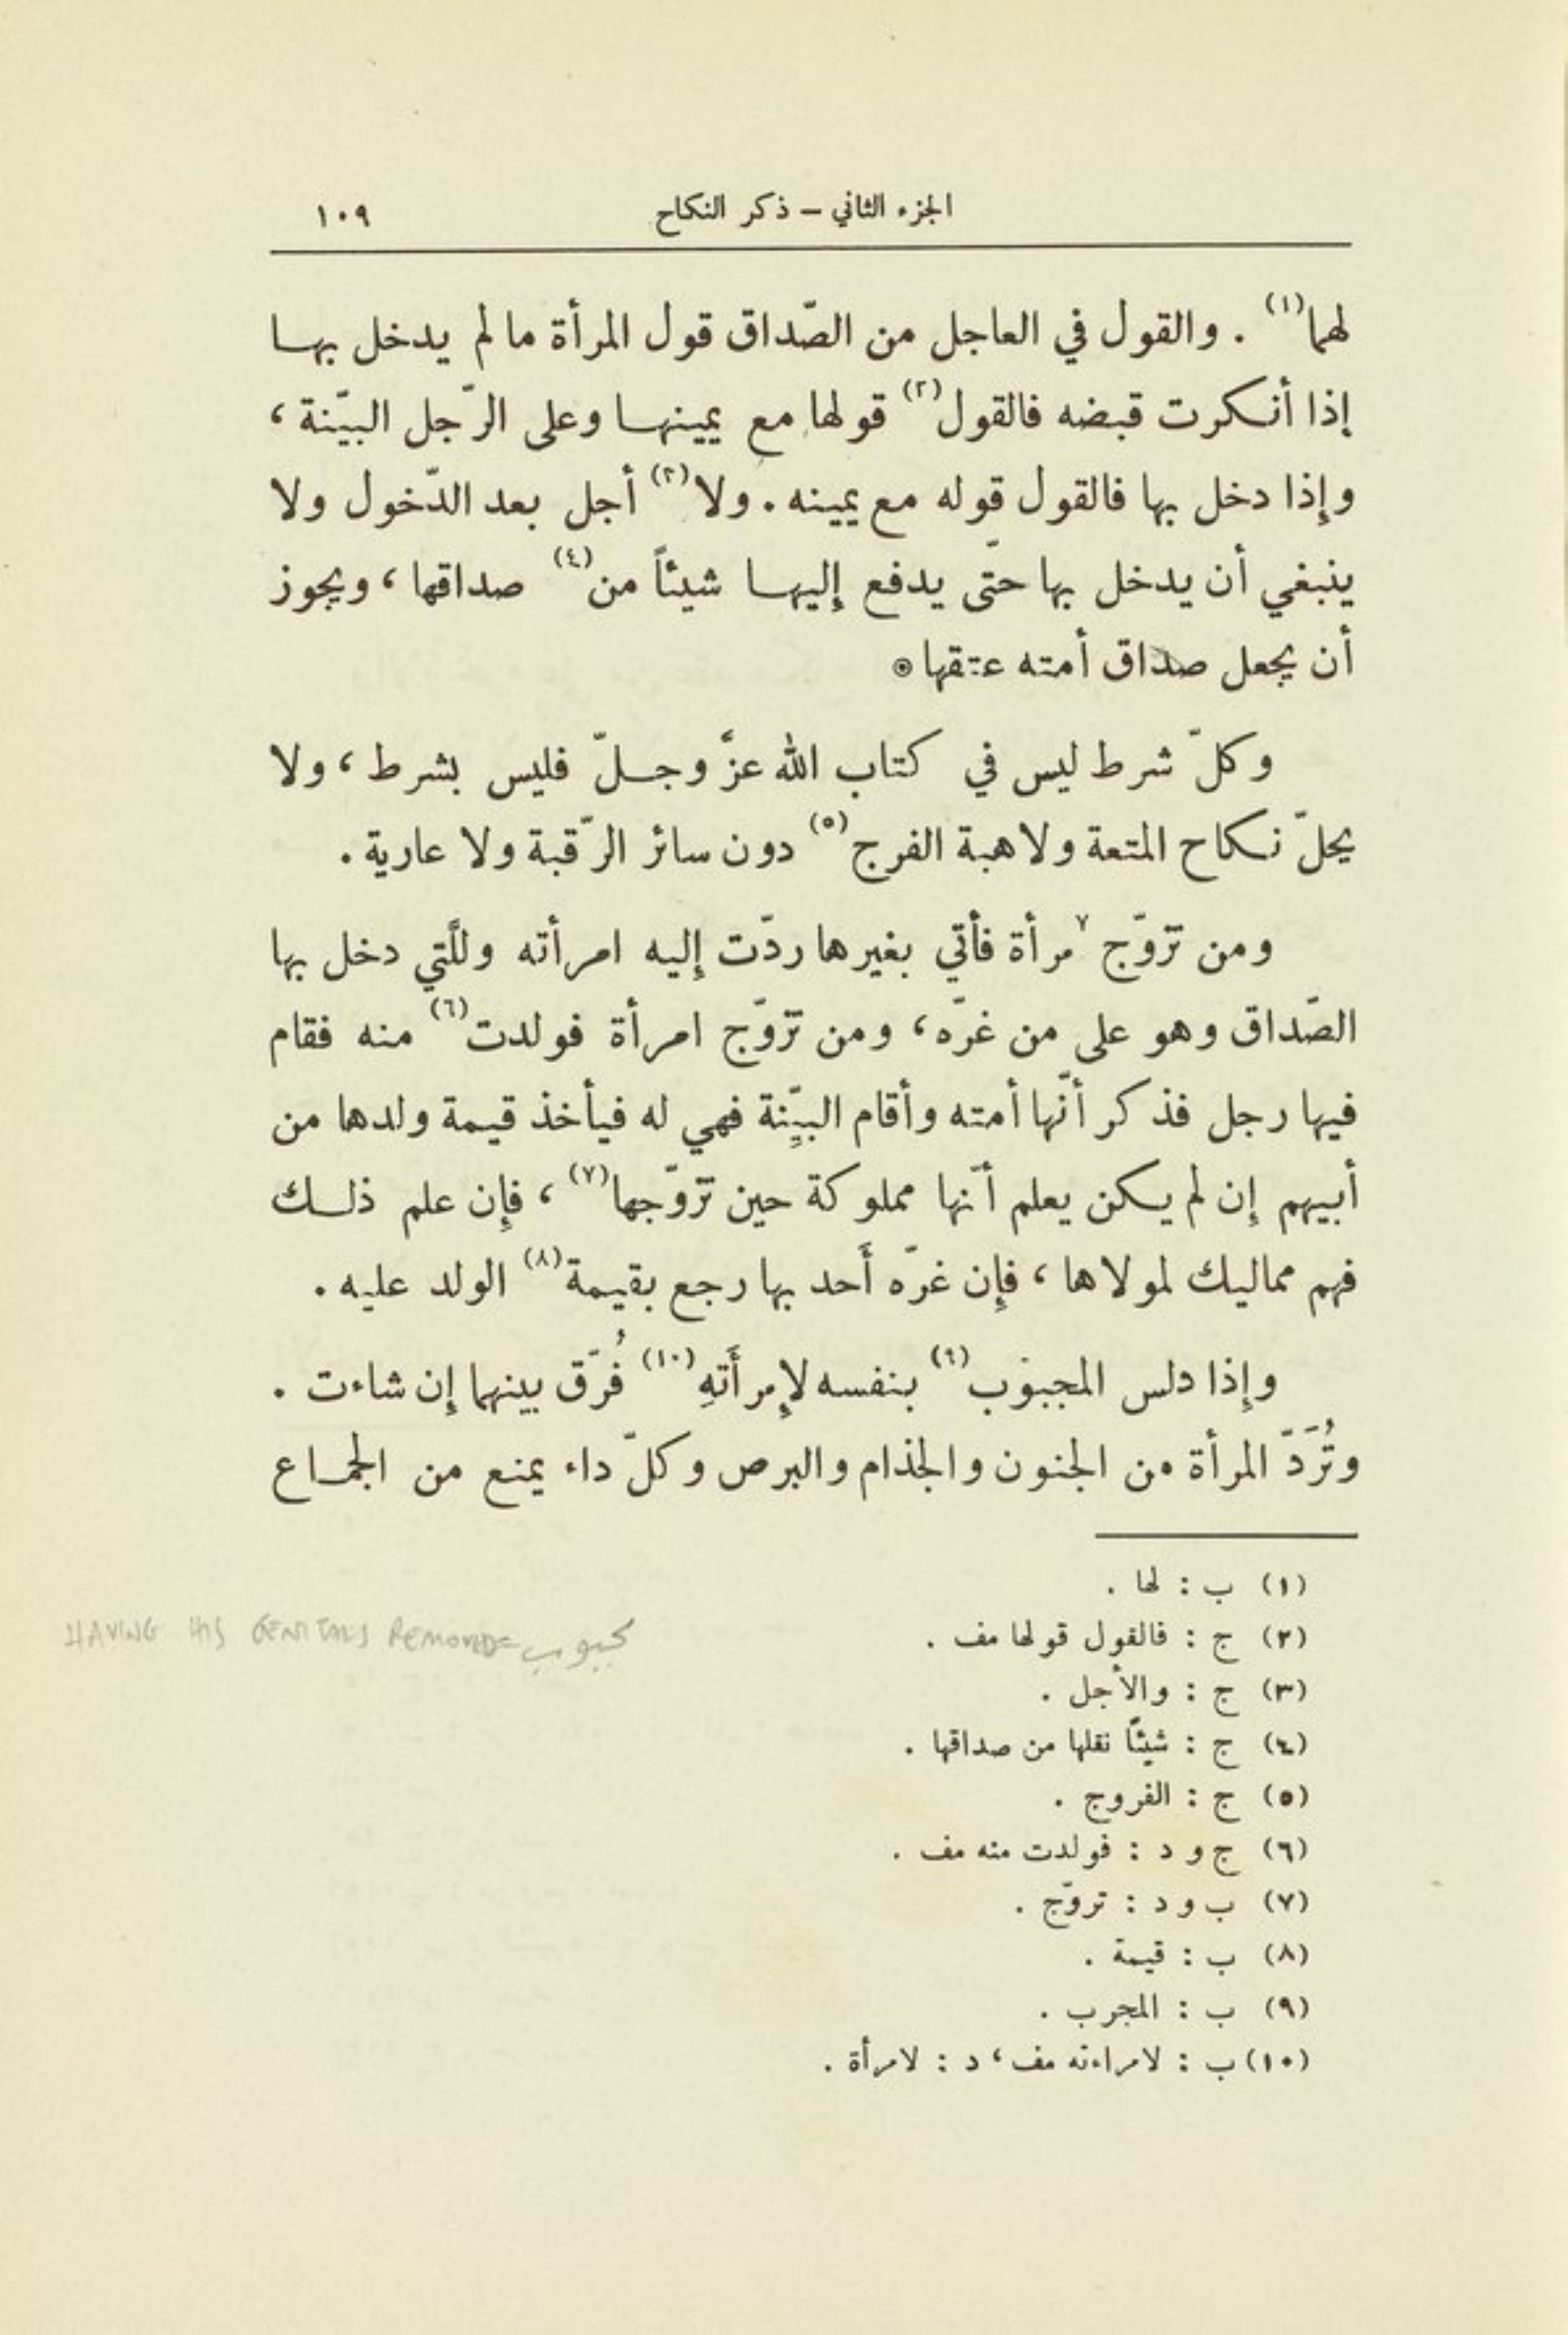 الجزء الثاني – ذكر النكاح ١٠٩
لهما(١) . والقول في العاجل من الصّداق قول المرأة ما لم يدخل بها
إذا أنكرت قبضه فالقول(٢) قولها مع يمينها وعلى الرّجل البيّنة ،
وإِذا دخل بها فالقول قوله مع يمينه . ولا(٣) أجل بعد الدّخول ولا
ينبغي أن يدخل بها حتّى يدفع إِليها شيئاً من(٤) صداقها ، ويجوز
أن يجعل صداق أمته عتقها ⊙
وكلّ شرط ليس في كتاب الله عزّ وجلّ فليس بشرط ، ولا
يحلّ نكاح المتعة ولا هبة الفرج(٥) دون سائر الرّقبة ولا عارية .
ومن تزوّج ٧مرأة فأتي بغيرها ردّت إِليه امرأته وللّتي دخل بها
الصّداق وهو على من غرّه ، ومن تزوّج امرأة فولدت(٦) منه فقام
فيها رجل فذكر أنّها أمته وأقام البيّنة فهي له فيأخذ قيمة ولدها من
أبيهم إِن لم يكن يعلم أنّها مملوكة حين تزوّجها(٧) ، فإِن علم ذلك
فهم مماليك لمولاها ، فإِن غرّه أَحد بها رجع بقيمة(٨) الولد عليه .
وإِذا دلس المجبوب(٩) بنفسه لإِمرأَتهِ(١٠) فُرّق بينهما إِن شاءت .
وتُرَدّ المرأة من الجنون والجذام والبرص وكلّ داء يمنع من الجماع
(١) ب : لها .
(٢) ج : فالقول قولها مف .
HAVING HIS GENITALS REMOVED = مجبوب
(٣) ج : والأجل .
(٤) ج : شيئًا نقلها من صداقها .
(٥) ج : الفروج .
(٦) ج و د : فولدت منه مف .
(٧) ب و د : تزوّج .
(٨) ب : قيمة .
(٩) ب : المجرب .
(١٠) ب : لامراءته مف ، د : لامرأة .